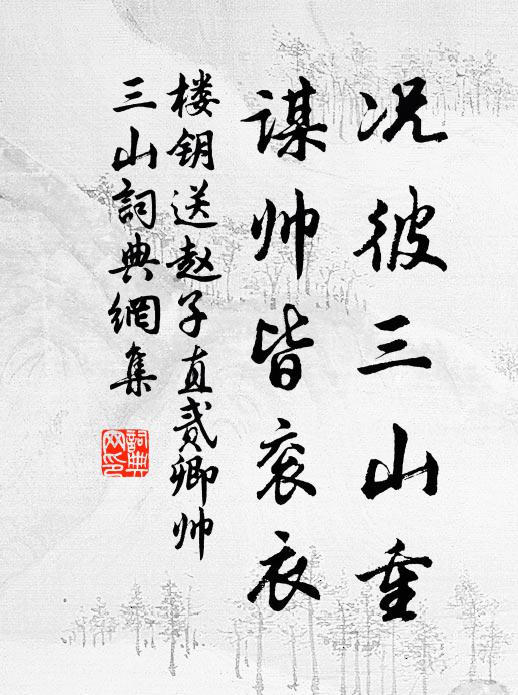 况彼三山重
谋帅皆衮衣
楼钥送赵子直贰卿帅
三山詞典網集
詞典网印